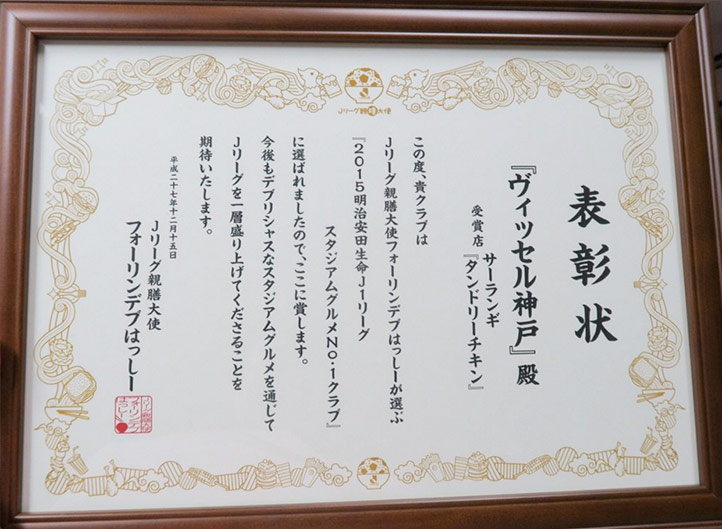 Jリーグ親膳大使
表彰状
『ヴィッセル神戸』殿
受賞店
サーランギ
『タンドリーチキン』
この度、貴クラブは
Jリーグ親膳大使フォーリンデブはっしーが選ぶ
『2015明治安田生命J1リーグ
スタジアムグルメNo.1クラブ』
に選ばれましたので、ここに賞します。
今後もデブリシャスなスタジアムグルメを通じて
Jリーグを一層盛り上げてくださることを
期待いたします。
平成二十七年十二月十五日
Jリーグ親膳大使
フォーリンデブはっしー